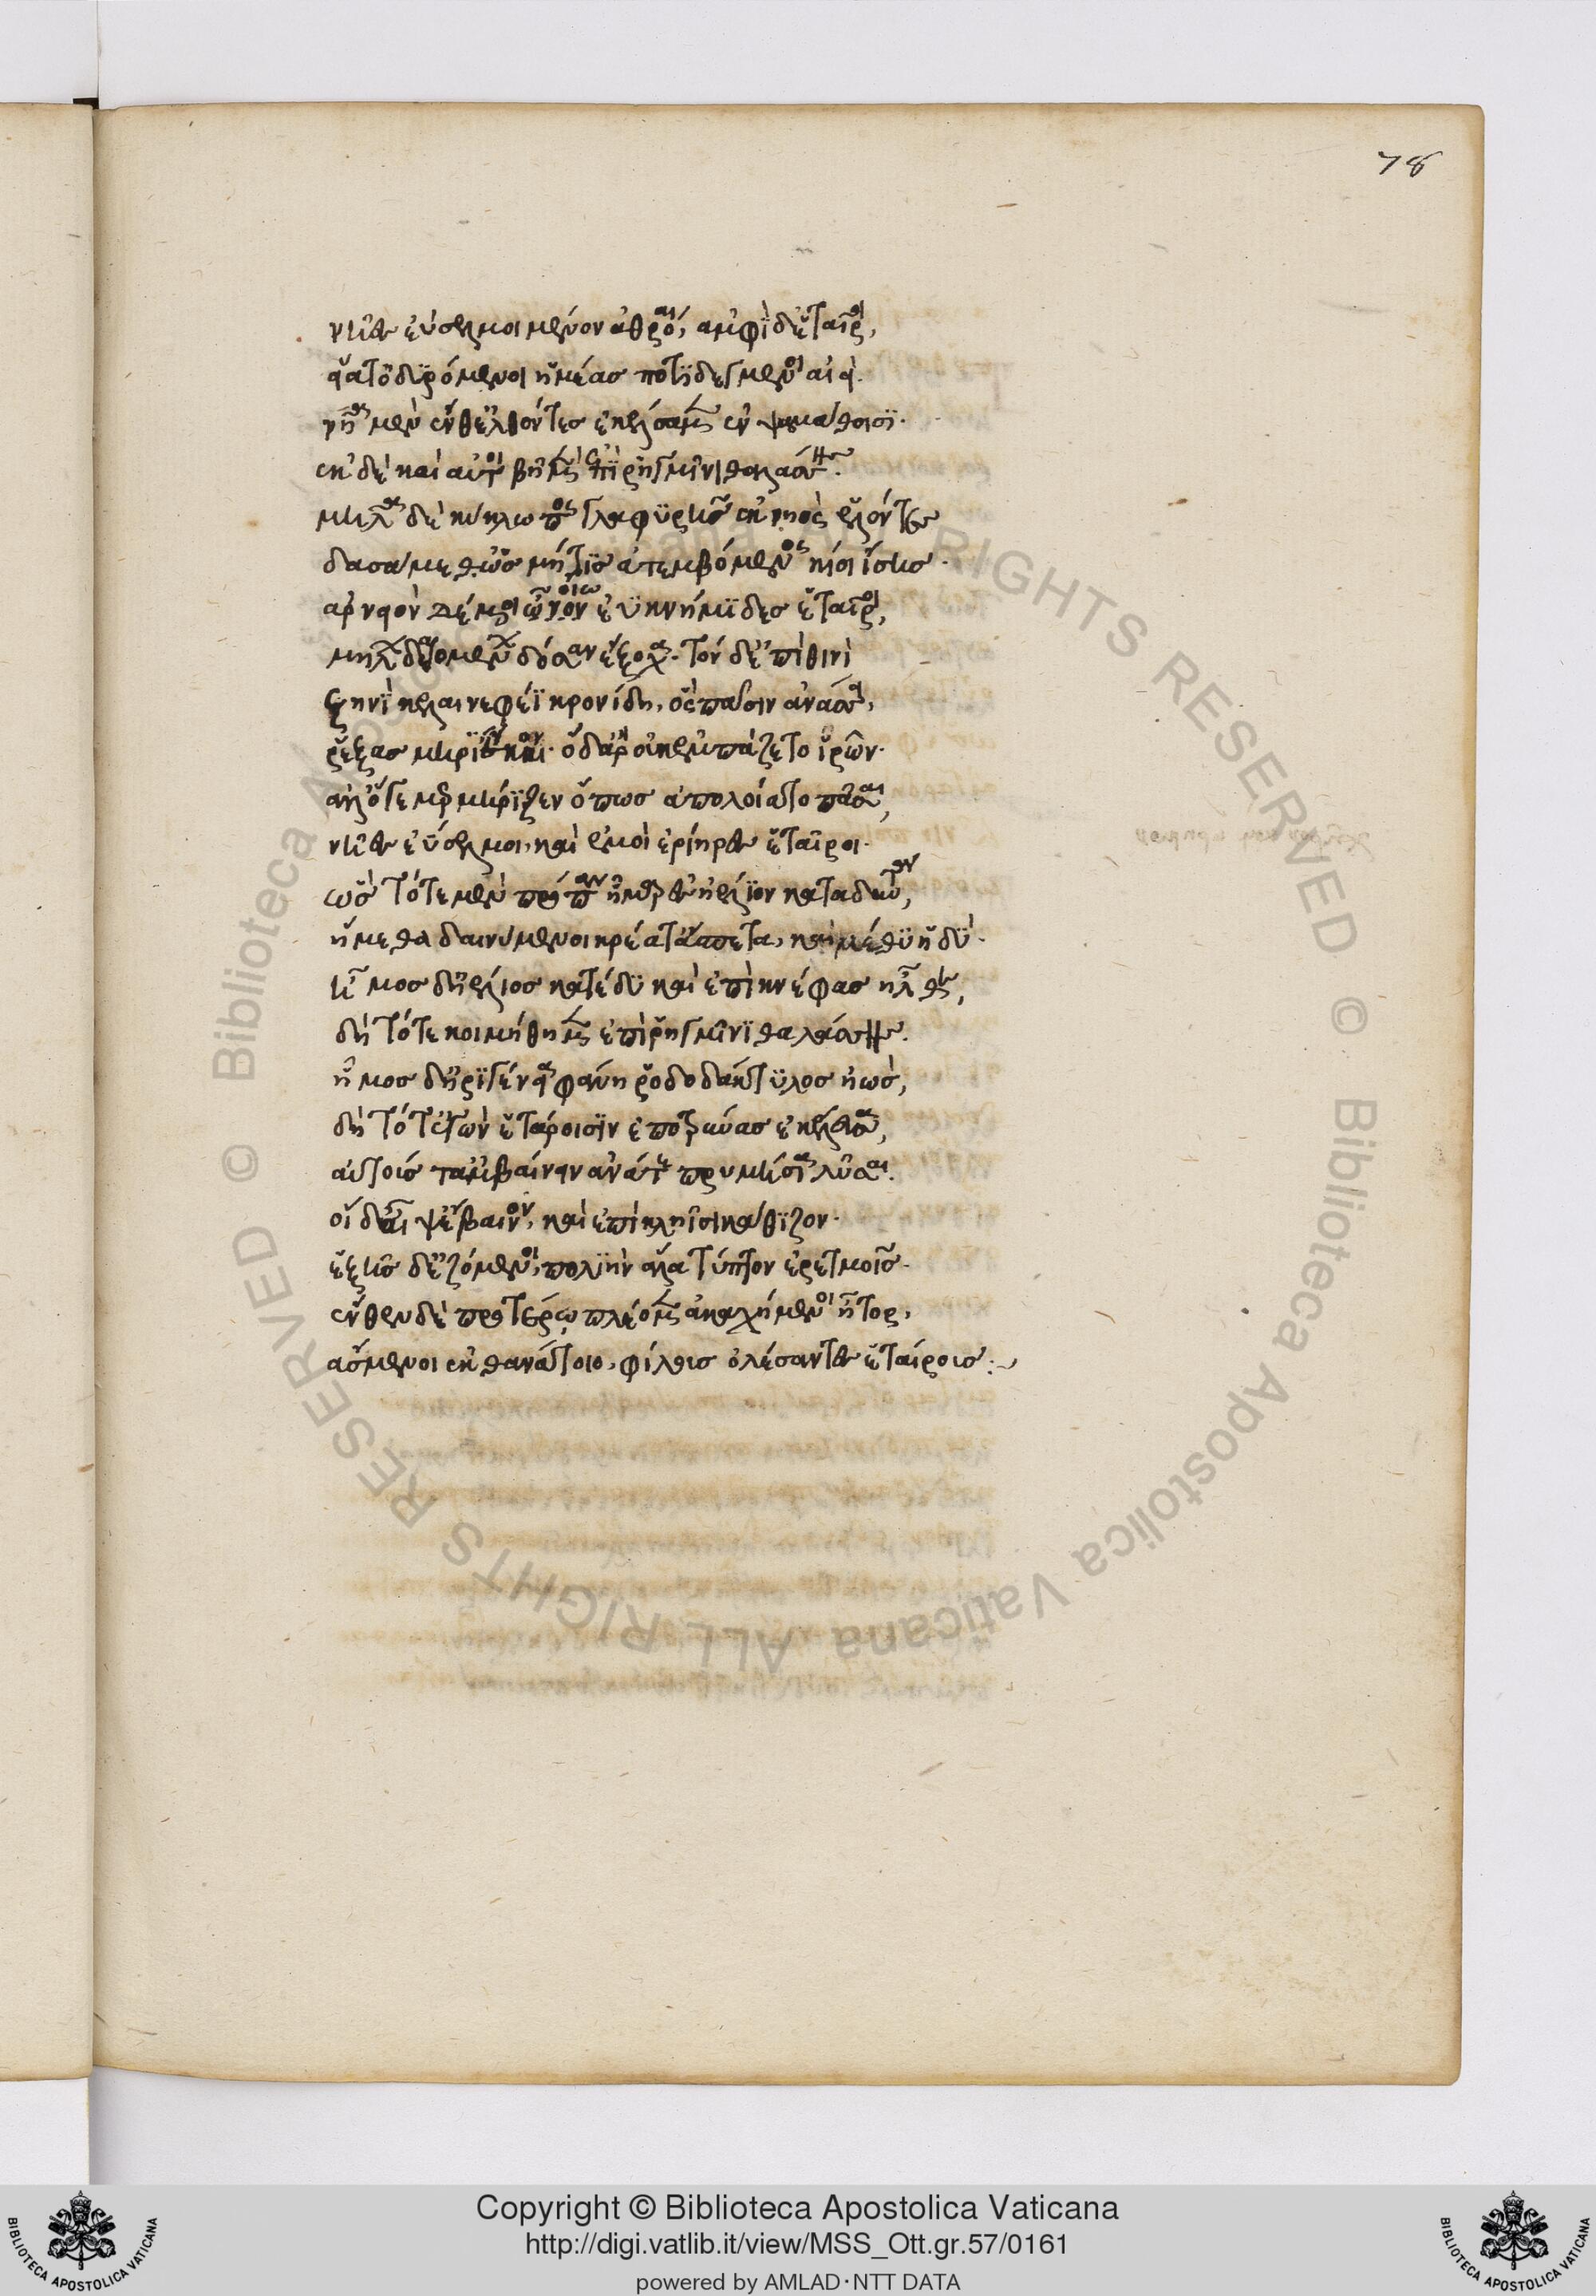 78
νῆες ἐύσελμοι μένον ἀθρόαι, ἀμφὶ δ' ἑταῖροι,
εἵατ' ὀδυρόμενοι ἡμέας ποτιδέγμενοι αἰεί.
νῆα μὲν ἔνθ' ἐλθόντες ἐκέλσαμεν ἐν ψαμάθοισι.
ἐκ δὲ καὶ αὐτοὶ βῆμεν ἐπὶ ῥηγμῖνι θαλάσσης.
μῆλα δὲ κύκλωπος γλαφυρῆς ἐκ νηὸς ἑλόντες
δασάμεθ' ὡς μή τις ἀτεμβόμενος κίοι ἴσης.
ἀρνειὸν δέ μοι οἴω ἐυκνήμιδες ἑταῖροι,
μήλων δαιομένων δόσαν ἔξοχα. τὸν δ' ἐπὶ θινὶ
ζηνὶ κελαινεφέι κρονίδῃ, ὃς πᾶσιν ἀνάσσει,
ῥέξας μηρί' ἔκαιον. ὁ δ' ἄρ' οὐκ ἐμπάζετο ἱρῶν.
ἀλλ' ὅγε μερμήριζεν ὅπως ἀπολοίατο πᾶσαι,
νῆες ἐύσελμοι, καὶ ἐμοὶ ἐρίηρες ἑταῖροι.
ὣς τότε μὲν πρόπαν ἦμαρ ἐς ἠέλιον καταδύντα,
ἥμεθα δαινύμενοι κρέατ' ἄσπετα, καὶ μέθυ ἡδύ.
ἦμος δ' ἠέλιος κατέδυ καὶ ἐπὶ κνέφας ἦλθε,
δὴ τότε κοιμήθημεν ἐπὶ ῥηγμῖνι θαλάσσης.
ἦμος δ' ἠριγένεια φάνη ῥοδοδάκτυλος ἠώς,
δὴ τότ' ἐγὼν ἑτάροισιν ἐποτρύνας ἐκέλευσα,
αὐτούς τ' ἀμβαίνειν ἀνά τε πρυμνήσια λῦσαι.
οἱ δ' αἶψ' εἴσβαινον, καὶ ἐπὶ κληῖσι κάθιζον.
ἑξῆς δ' ἑζόμενοι, πολιὴν ἅλα τύπτον ἐρετμοῖς.
ἔνθεν δὲ προτέρω πλέομεν ἀκαχήμενοι ἦτορ,
ἄσμενοι ἐκ θανάτοιο, φίλους ὀλέσαντες ἑταίρους :~
Copyright © Biblioteca Apostolica Vaticana
http://digi.vatlib.it/view/MSS_Ott.gr.57/0161
powered by AMLAD·NTT DATA
BIBLIOTECA APOSTOLICA VATICANA
BIBLIOTECA APOSTOLICA VATICANA
© Biblioteca Apostolica Vaticana ALL RIGHTS RESERVED
© Biblioteca Apostolica Vaticana ALL RIGHTS RESERVED